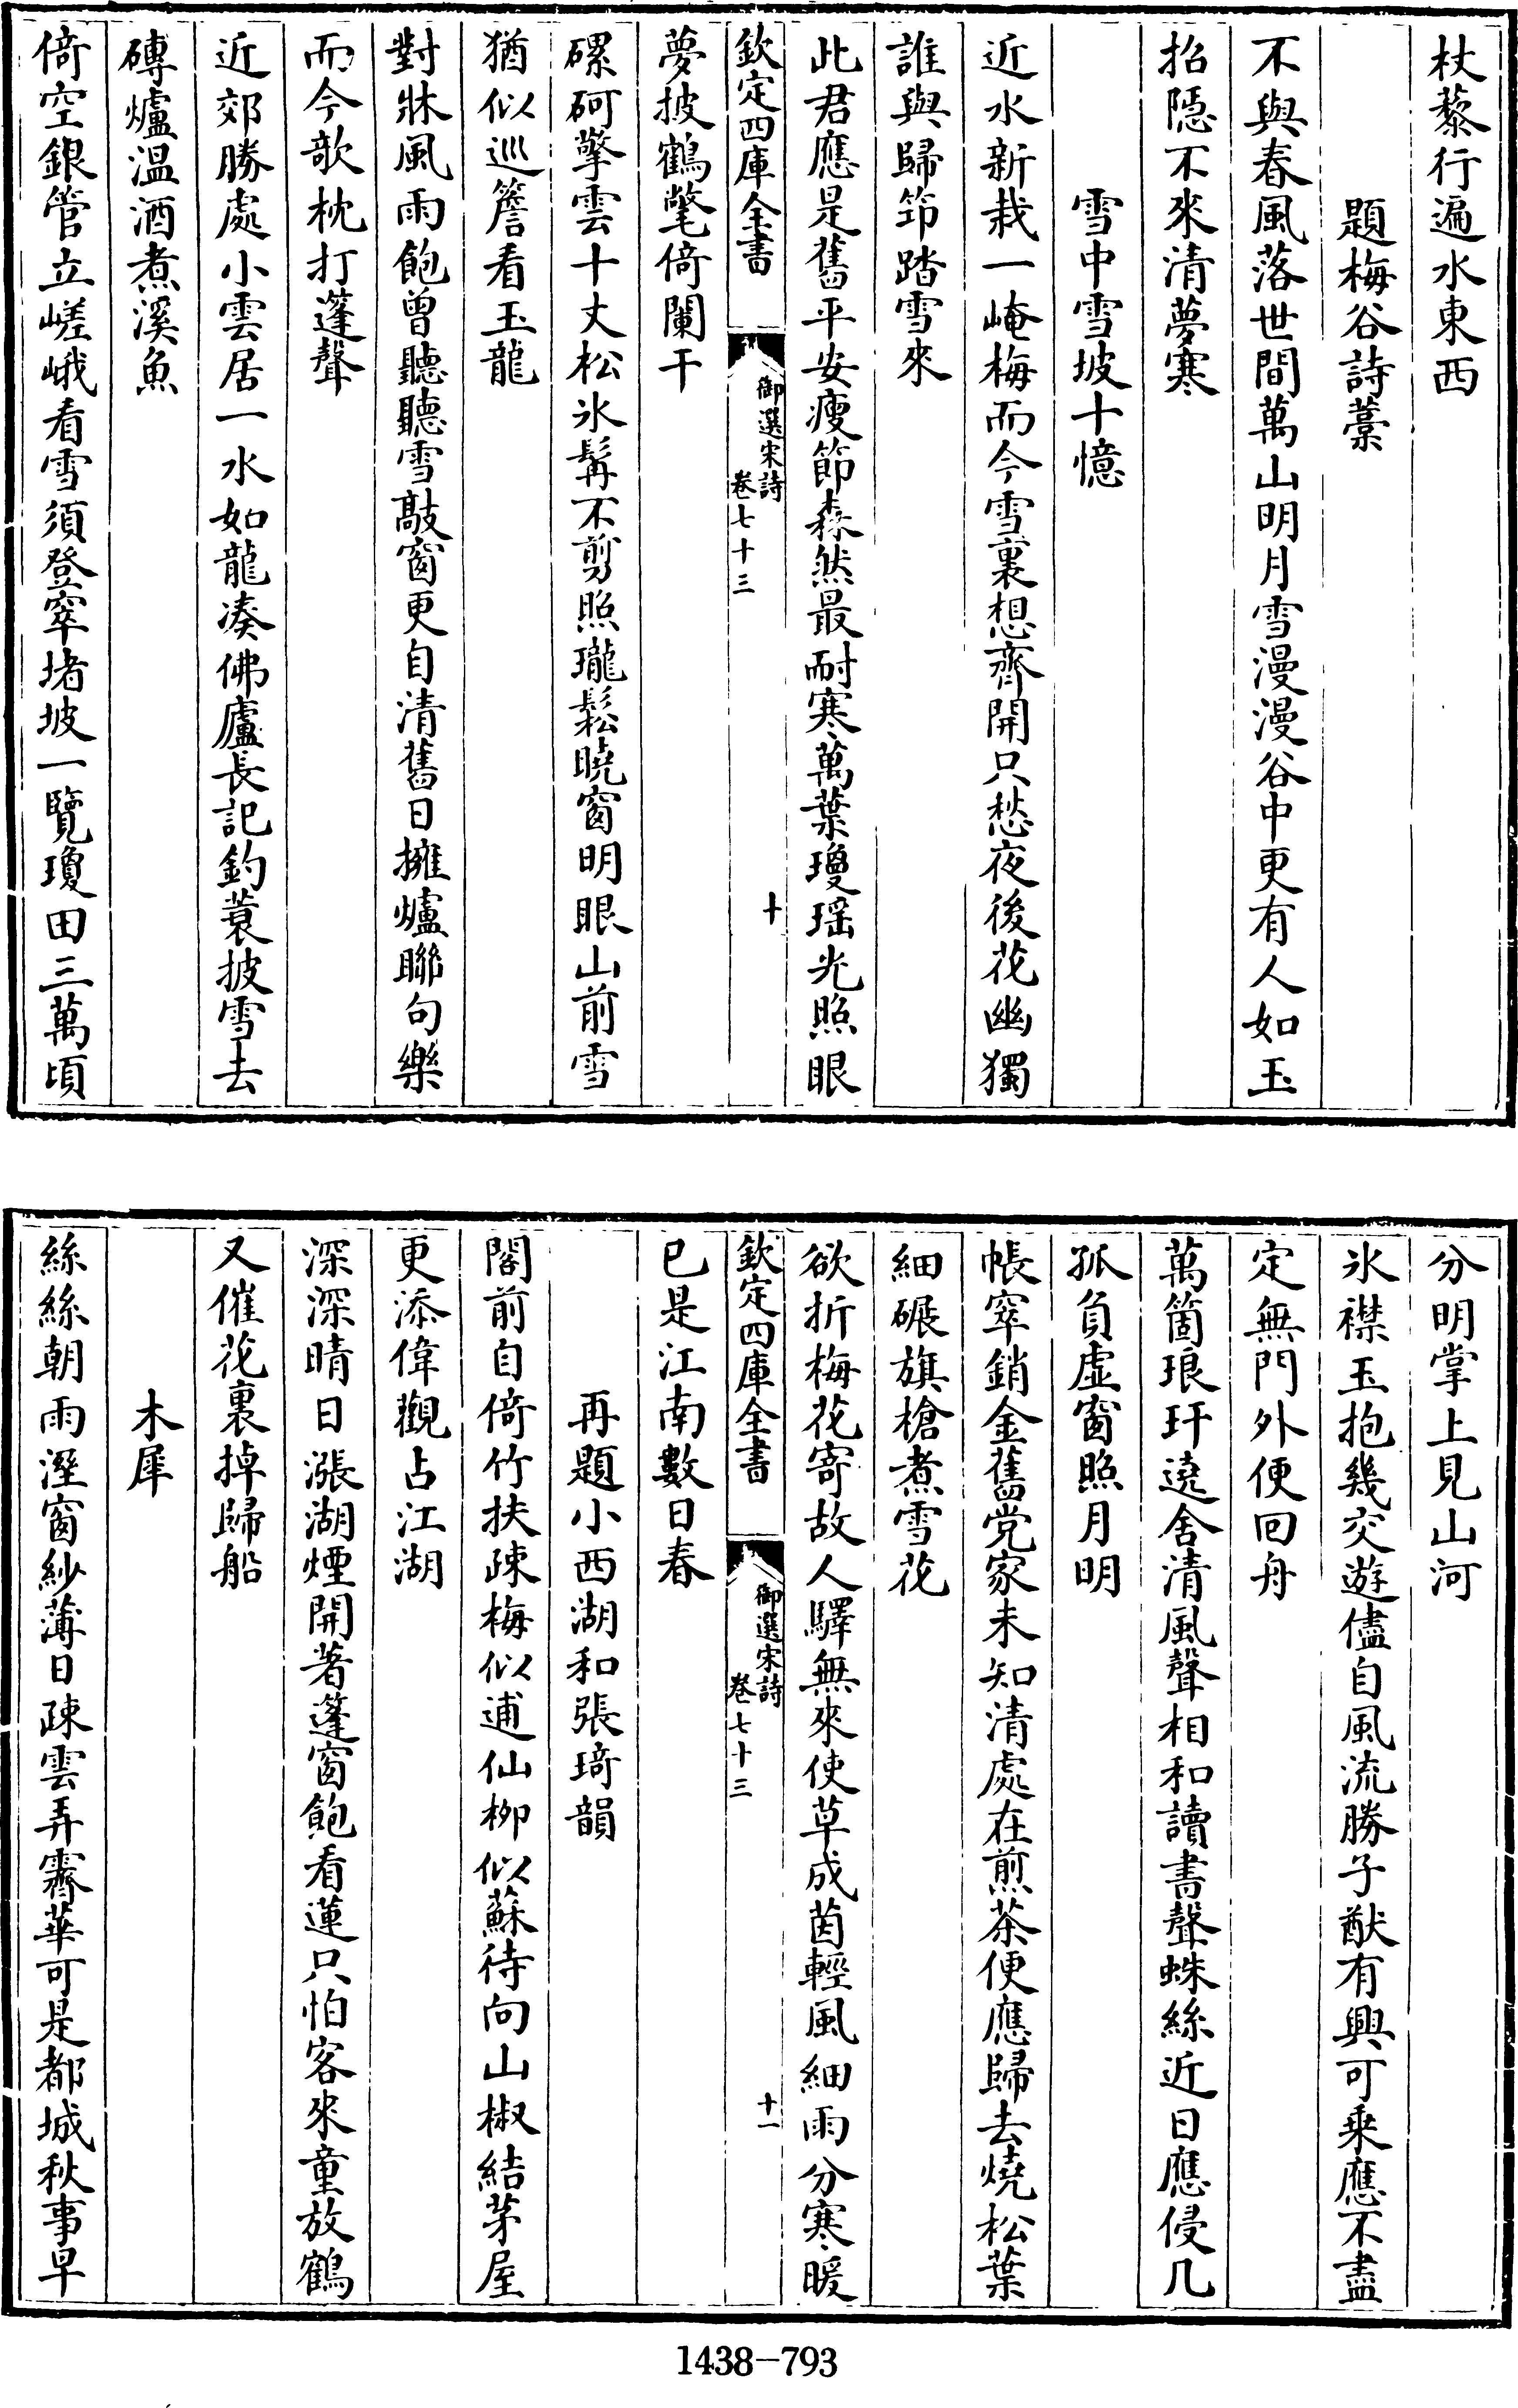 杖藜行遍水東西
題梅谷詩藁
不與春風落世間萬山明月雪漫漫谷中更有人如玉
招隠不來清夢寒
雪中雪坡十憶
近水新栽一崦梅而今雪裏想齊開只愁夜後花幽獨
誰與歸笻踏雪來
此君應是舊平安瘦節森然最耐寒萬葉瓊瑶光照眼
欽定四庫全書
御選宋詩
卷七十三
十
夢披鶴氅倚闌干
磥砢擎雲十丈松氷髯不剪照瓏鬆曉窗明眼山前雪
猶似巡簷看玉龍
對牀風雨飽曾聽聽雪敲窗更自清舊日擁爐聯句樂
而今欹枕打蓬聲
近郊勝處小雲居一水如龍凑佛廬長記釣蓑披雪去
磚爐温酒煮溪魚
倚空銀管立嵯峨看雪須登窣堵坡一覽瓊田三萬頃
分明掌上見山河
氷襟玉抱幾交遊儘自風流勝子猷有興可乗應不盡
定無門外便回舟
萬箇琅玕遶舍清風聲相和讀書聲蛛絲近日應侵几
孤負虚窗照月明
帳窣銷金舊党家未知清處在煎茶便應歸去燒松葉
細碾旗槍煮雪花
欲折梅花寄故人驛無來使草成茵輕風細雨分寒暖
欽定四庫全書
御選宋詩
卷七十三
十一
已是江南數日春
再題小西湖和張琦韻
閣前自倚竹扶疎梅似逋仙柳似蘇待向山椒結茅屋
更添偉觀占江湖
深深晴日漲湖煙開著蓬窗飽看蓮只怕客來童放鶴
又催花裏掉歸船
木犀
絲絲朝雨溼窗紗薄日疎雲弄霽華可是都城秋事早
1438-793